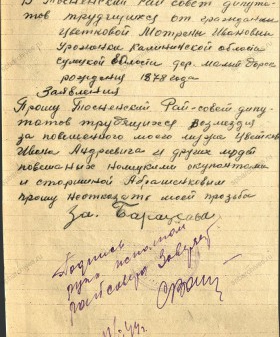 В Тосненский Рай совет депута-
тов трудящихся от гражданки
Цветковой Матрены Ивановны
Уроженки Калининской области
дер. малый
рождения 1878 года
Заявления
Прошу Тосненский Рай-совет депу-
татов трудящихся возмездия
за повешенного моего мужа Цветкова
Ивана Андреевича и других людей
повешаных немецкими окупантами
и старшиной Абраменковым
прошу неотказать моей прозьба
За.
Подпись
заверяет